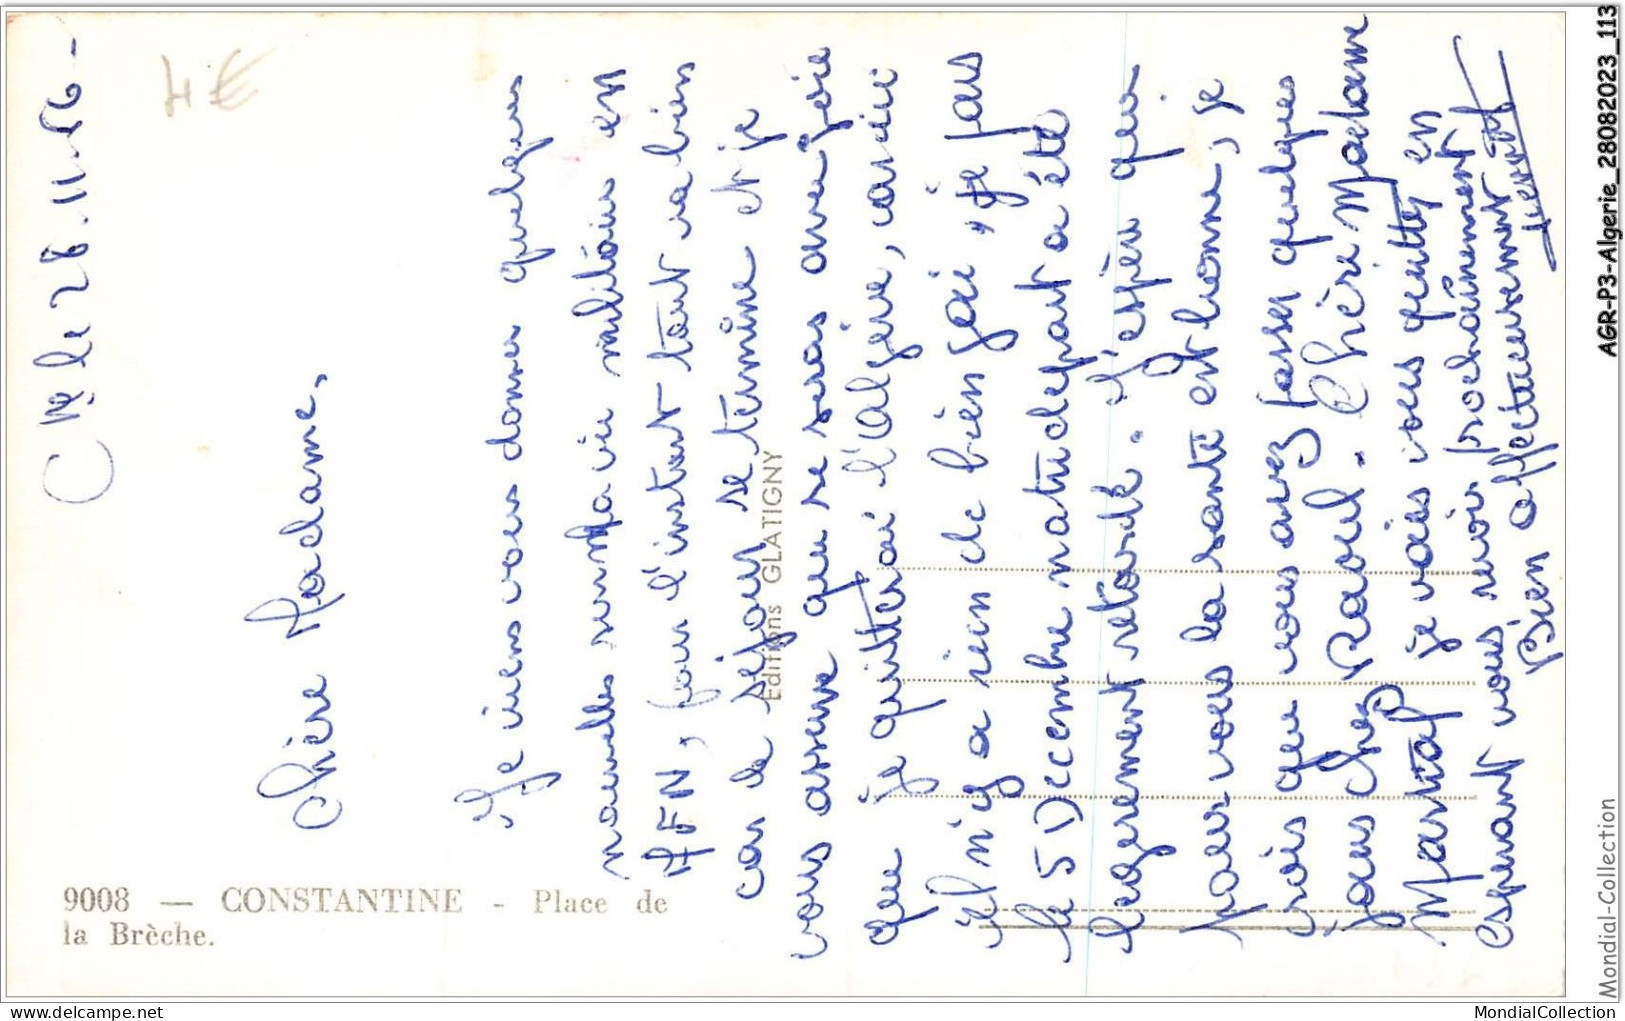 Cne le 28.11.56-
4€
Chère Madame,
Je viens vous donner quelques
nouvelles sur ma vie militaire en
AFN, pour l'instant tout va bien
car le séjour se termine et je
vous assure que se seras avec joie
que je quitterai l'Algérie, car ici
il n'y a rien de bien gai, je pars
le 5 Decembre notre depart a été
legerement retardé. J'espère que
pour vous la santé est bonne, je
vois que vous avez passer quelques
jours chez Raoul. Chère Madame
Martial je vais vous quitter en
esperant vous revoir prochainement
Bien affectueusement
9008 — CONSTANTINE - Place de
la Brèche.
Editions GLATIGNY
AGR-P3-Algerie_28082023_113
Mondial-Collection
MondialCollection